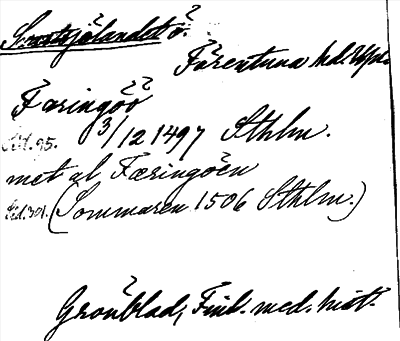 Svartsjölandet ö.
Färentuna hd. Uppl.
Færingöö
3/12 1497 Sthlm.
met al Færingöen
Sid. 301. (Sommaren 1506 Sthlm.)
Grönblad, Finl. med. hist.